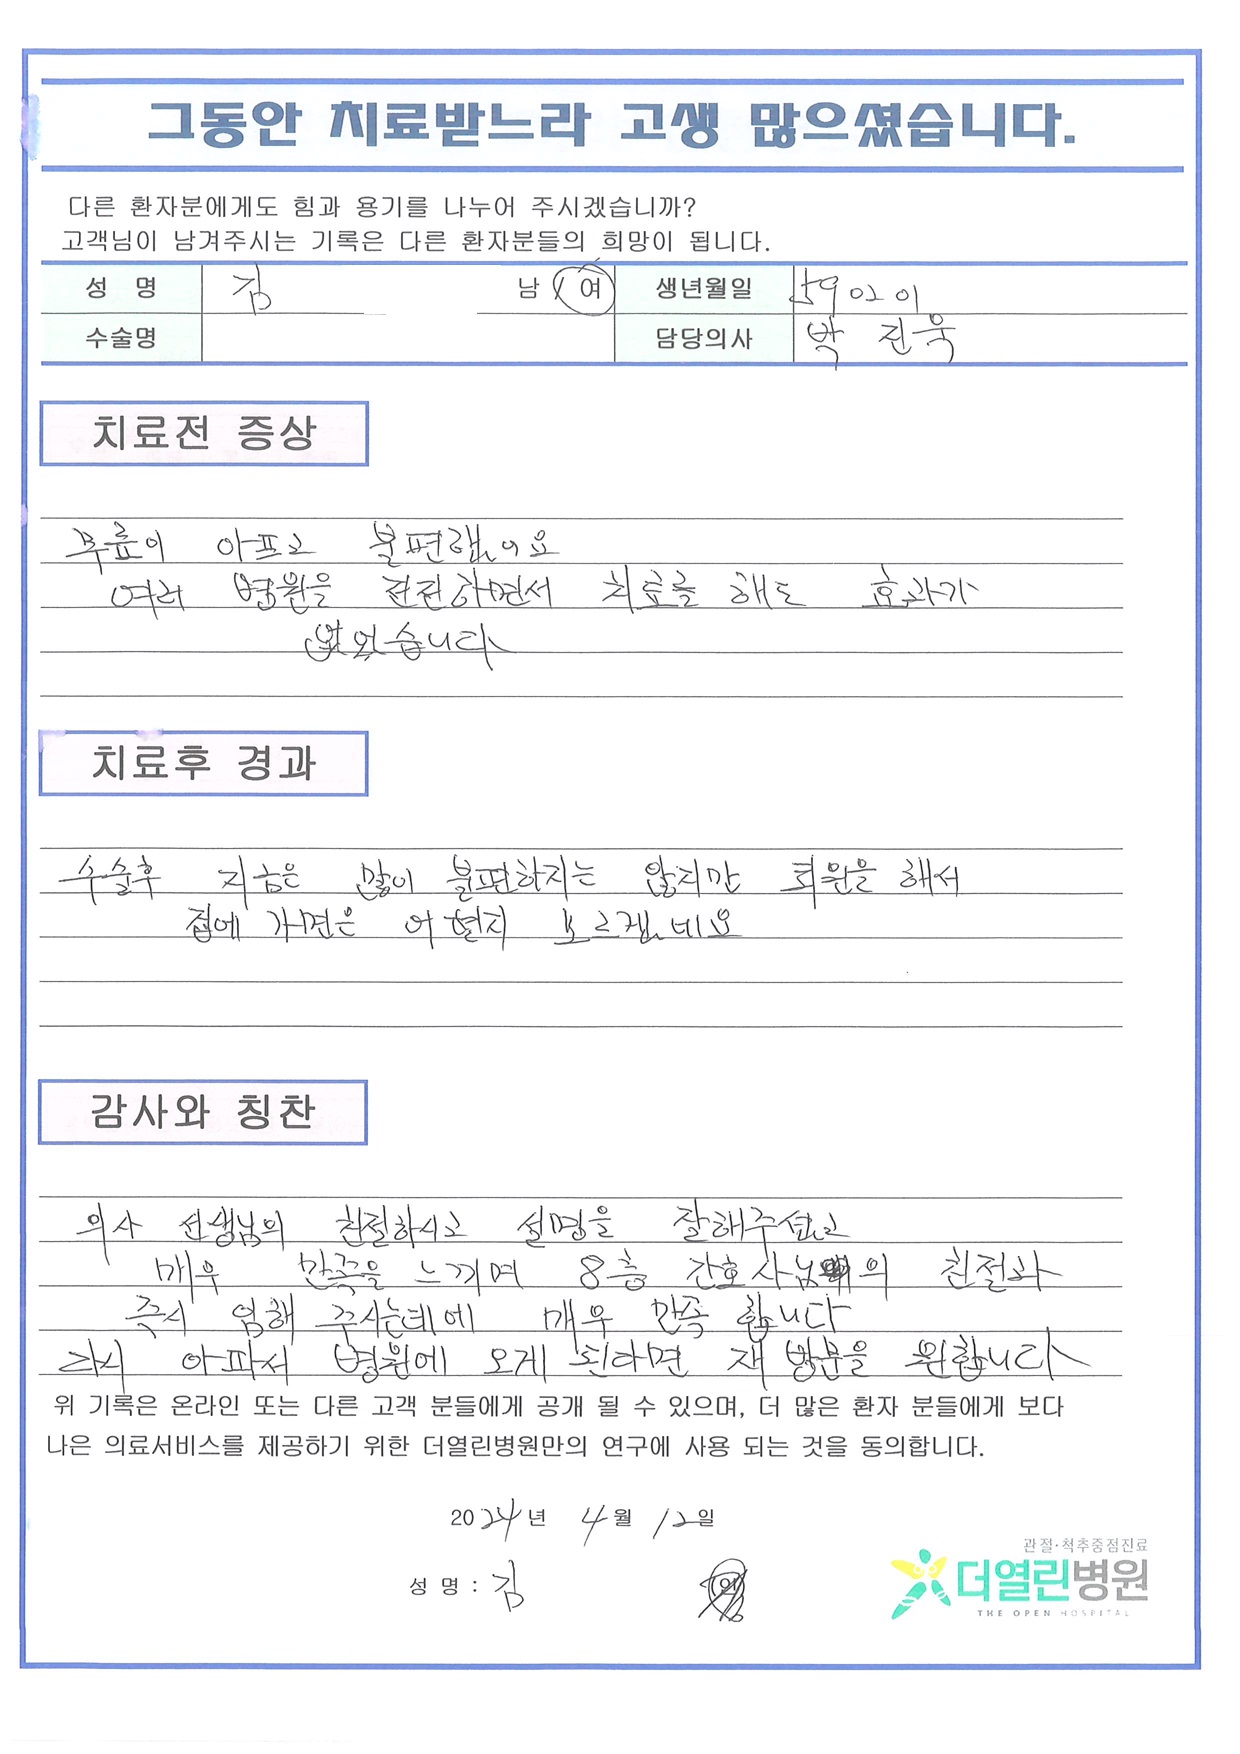 그동안 치료받느라 고생 많으셨습니다.
다른 환자분에게도 힘과 용기를 나누어 주시겠습니까?
고객님이 남겨주시는 기록은 다른 환자분들의 희망이 됩니다.
성 명 김 남 / 여 생년월일 59 02 01
수술명 담당의사 박 진욱
치료전 증상
무릎이 아프고 불편했어요
여러 병원을 전전하면서 치료를 해도 효과가
없었습니다
치료후 경과
수술후 지금은 많이 불편하지는 않지만 퇴원을 해서
집에 가면은 어떨지 모르겠네요
감사와 칭찬
의사 선생님의 친절하시고 설명을 잘해주셨고
매우 만족을 느끼며 8층 간호사님의 친절과
즉시 임해 주시는데에 매우 만족 합니다
다시 아파서 병원에 오게 된다면 재 방문을 원합니다
위 기록은 온라인 또는 다른 고객 분들에게 공개 될 수 있으며, 더 많은 환자 분들에게 보다
나은 의료서비스를 제공하기 위한 더열린병원만의 연구에 사용 되는 것을 동의합니다.
2024년 4월 12일
성 명 : 김 인
관절·척추중점진료
더열린병원
THE OPEN HOSPITAL